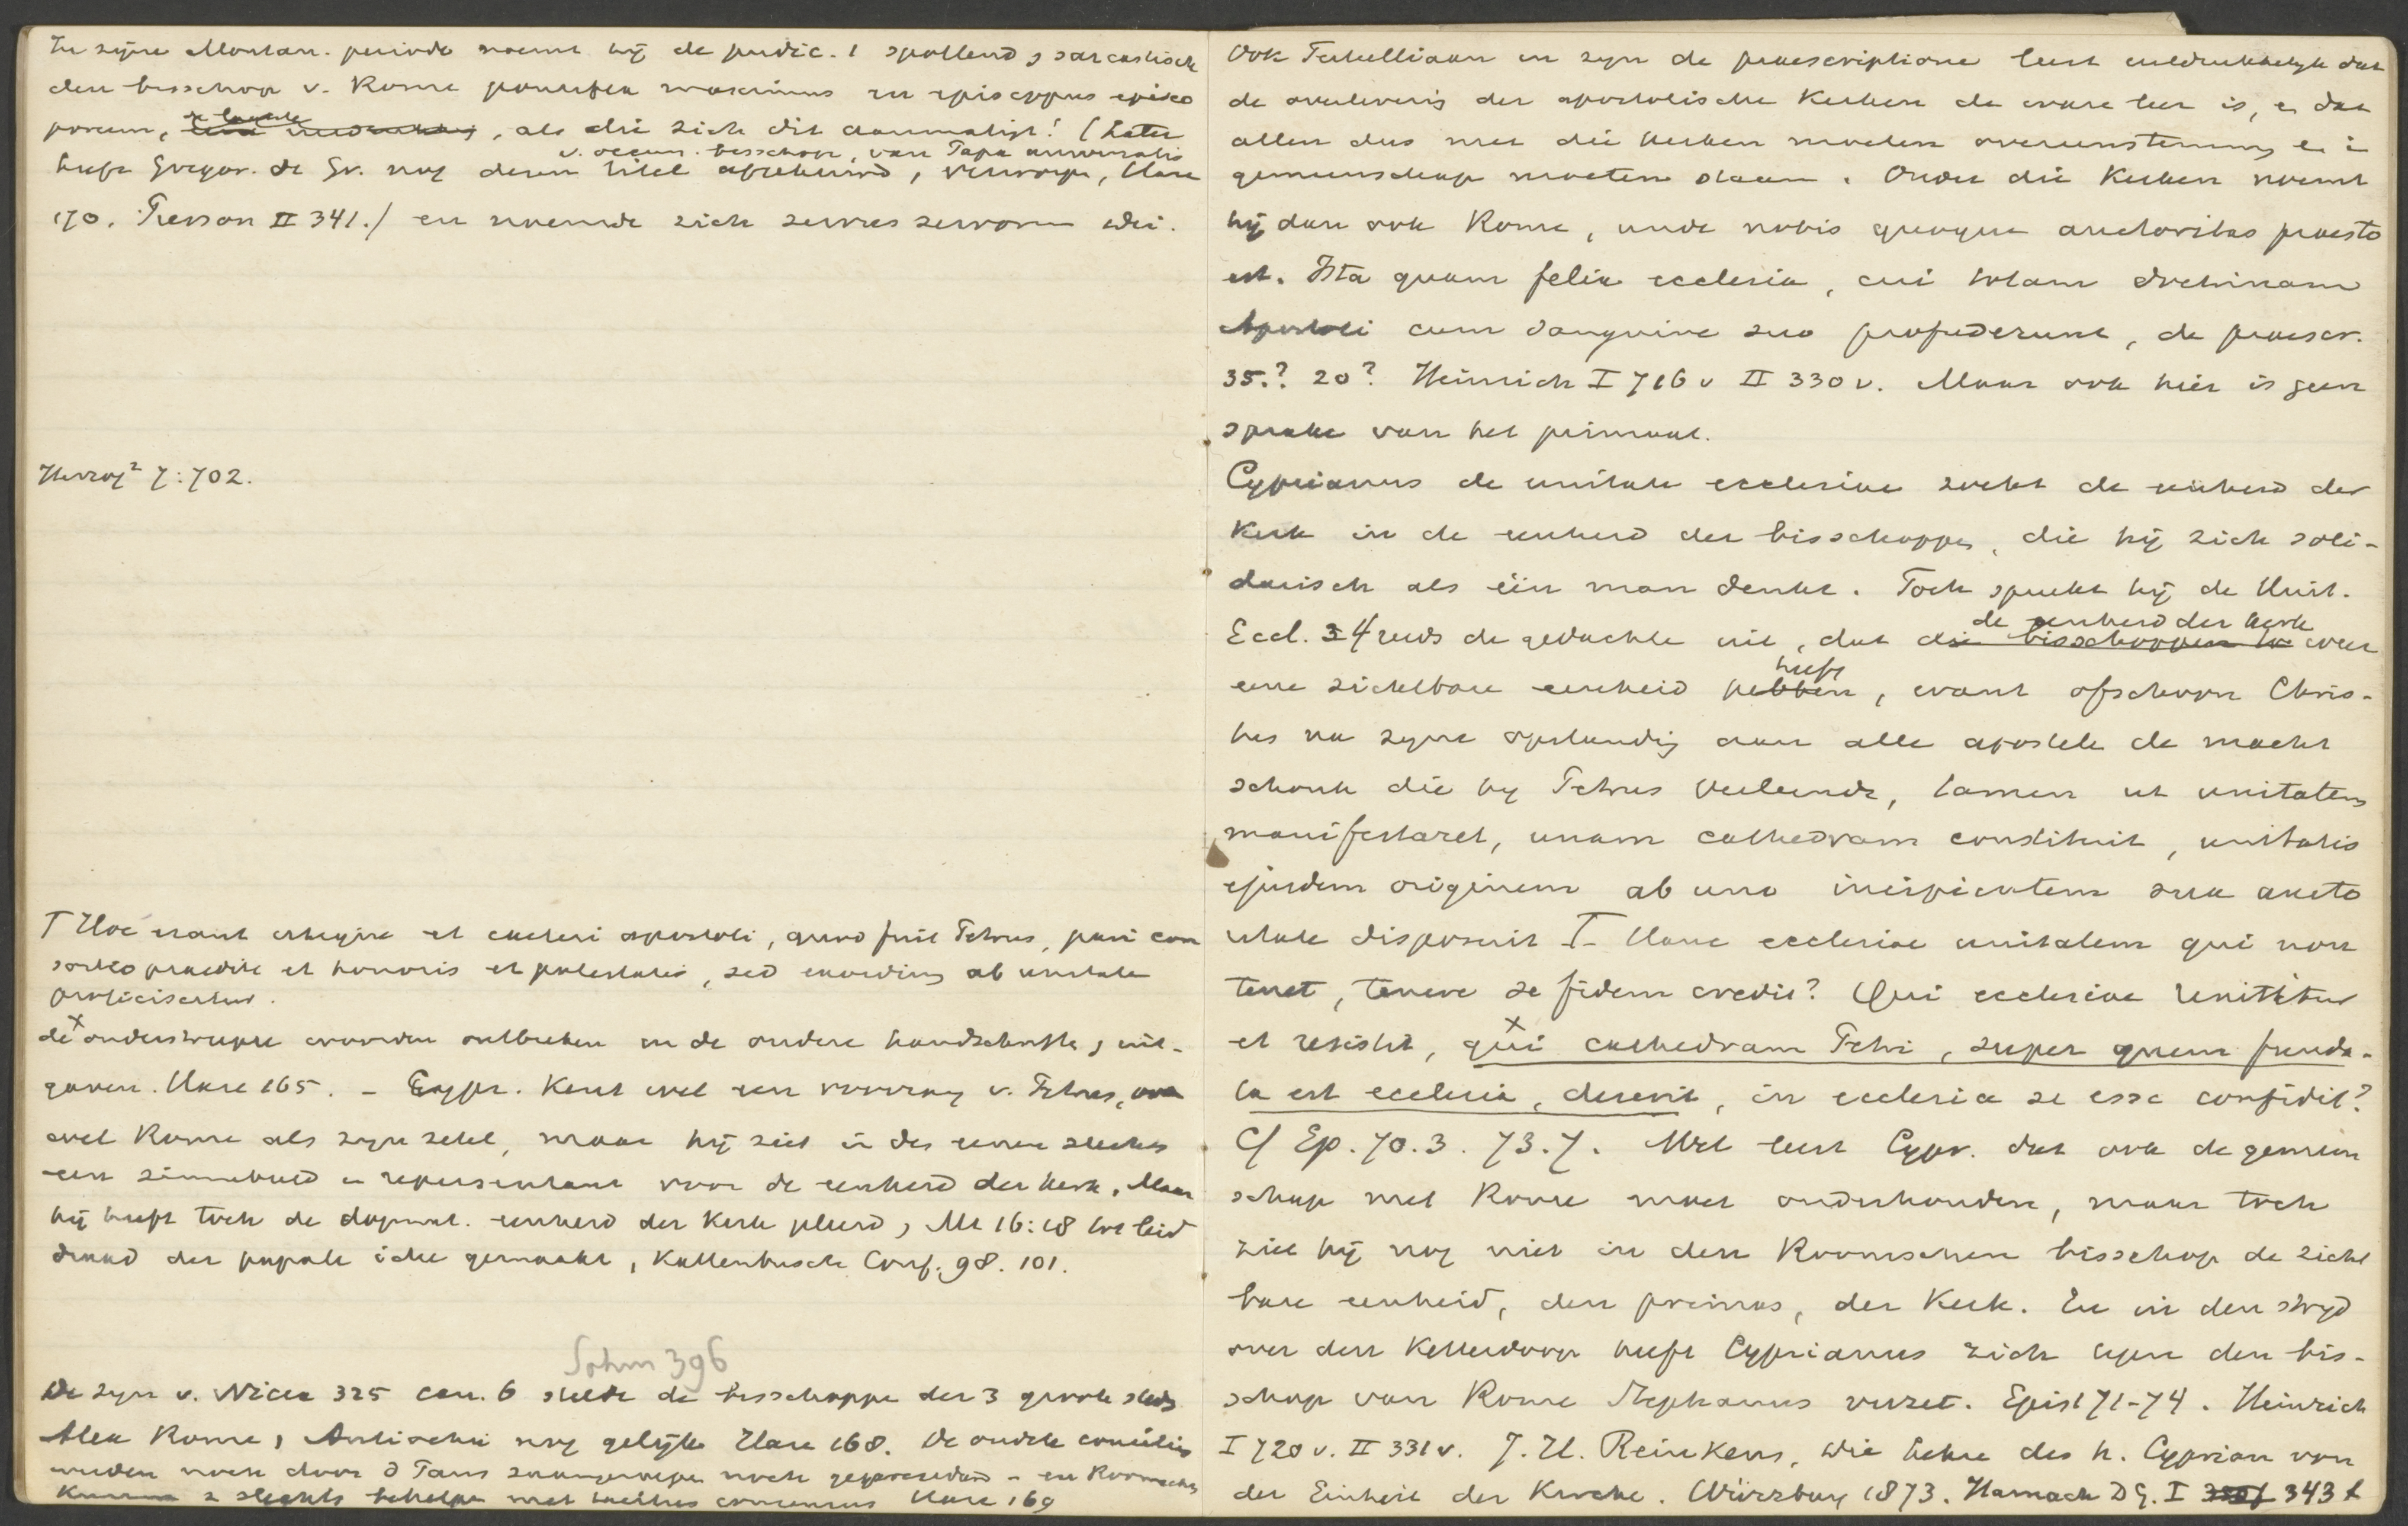 In zijne Montan. periode noemt hij de pudic. 1 spottend & sarcastisch
den bisschop v. Rome pontifex maximus en episcopus episco
porum, als die zich dit aanmatigt! (Later
v. oecum. bisschop, van Papa universalis
heeft Gregor. de Gr. nog dezen titel afgekeurd, verworpen, Hase
170. Perrone II 341.) en noemde zich servus servorum dei.
Herzog² 7:702.
T Hoc erant utique et caeteri apostoli, quod fuit Petrus, pari con
sortio praediti et honoris et potestatis, sed exordium ab unitate
proficiscitur.
de x onderstreepte woorden ontbreken in de oudere handschriften & uit-
gaven. Hase 165. – Cypr. kent wel een voorrang v. Petrus, ook
wel Rome als zijn zetel, maar hij ziet in des eenen slechts
een zinnebeeld en representant voor de eenheid der kerk. Maar
hij heeft toch de dogmat. eenheid der Kerk pleid, Mt 16:18 tot leid
draad der papale idee gemaakt, Kattenbusch Conf. 98. 101.
Sohm 396
De syn v. Nicea 325 can. 6 stelde de bisschoppen der 3 groote steden
Alex Rome, Antiochie nog gelijk Hase 168. De oudste conciliën
werden noch door d Paus zaamgeroepen noch gepresideerd – en Roomschen
kunnen z slechts behelpen met tacitus consensus Hase 169
Ook Tertulliaan in zijn de praescriptione leert uitdrukkelijk dat
de overlevering der apostolische Kerken de ware leer is, en dat
allen dus met die kerken moeten overeenstemmen en in
gemeenschap moeten staan. Onder die Kerken noemt
hij dan ook Rome, unde nobis quoque auctoritas praesto
est. Ista quam felix ecclesia, cui totam doctrinam
Apostoli cum sanguine suo profuderunt, de praescr.
35.? 20? Heinrich I 716 v II 330 v. Maar ook hier is geen
sprake van het primaat.
Cyprianus de unitate ecclesiae zoekt de eenheid der
Kerk in de eenheid der bisschoppen, die hij zich soli-
darisch als één man denkt. Toch spreekt hij de Unit.
de eenheid der kerk
Eccl. 4 reeds de gedachte uit, dat die bisschoppen weer
heeft
eene zichtbare eenheid hebben, want ofschoon Chris-
tus na zijne opstanding aan alle apostelen de macht
schonk die hij Petrus verleende, tamen ut unitatem
manifestaret, unam cathedram constituit, unitatis
ejusdem originem ab uno incipientem sua aucto
ritate disposuit T– Hanc ecclesiae unitatem qui non
tenet, tenere se fidem credit? Qui ecclesiae renititur
et resistit, x qui cathedram Petri, super quem funda-
ta est ecclesia, deserit, in ecclesia se esse confidit?
Cf Ep. 70.3. 73.7. Wel leert Cypr. dat ook de gemeen
schap met Rome moet onderhouden, maar toch
ziet hij nog niet in den Roomschen bisschop de zicht
bare eenheid, den primus, der Kerk. En in den strijd
over den Ketterdoop heeft Cyprianus zich tegen den bis-
schop van Rome Stephanus verzet. Epist 71-74. Heinrich
I 720 v. II 331 v. J. H. Reinkens, die Lehre des h. Cyprian von
der Einheit der Kirche. Würzburg 1873. Harnack DG. I 343 f